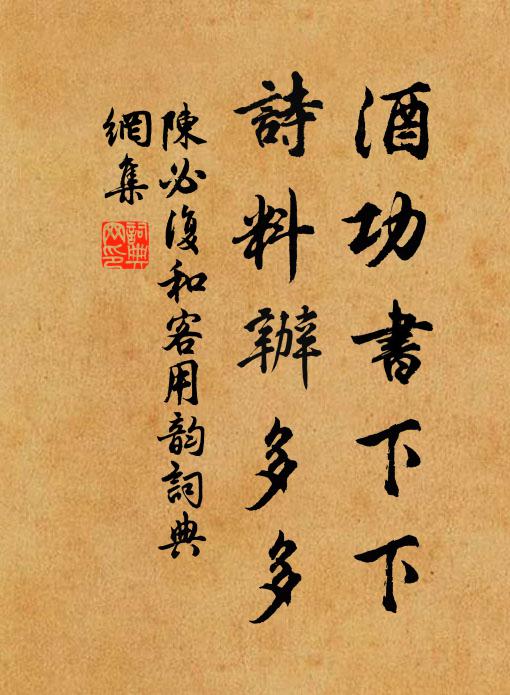 酒功書下下
詩料辦多多
陳必復和客用韵詞典
網集
詞典
网印